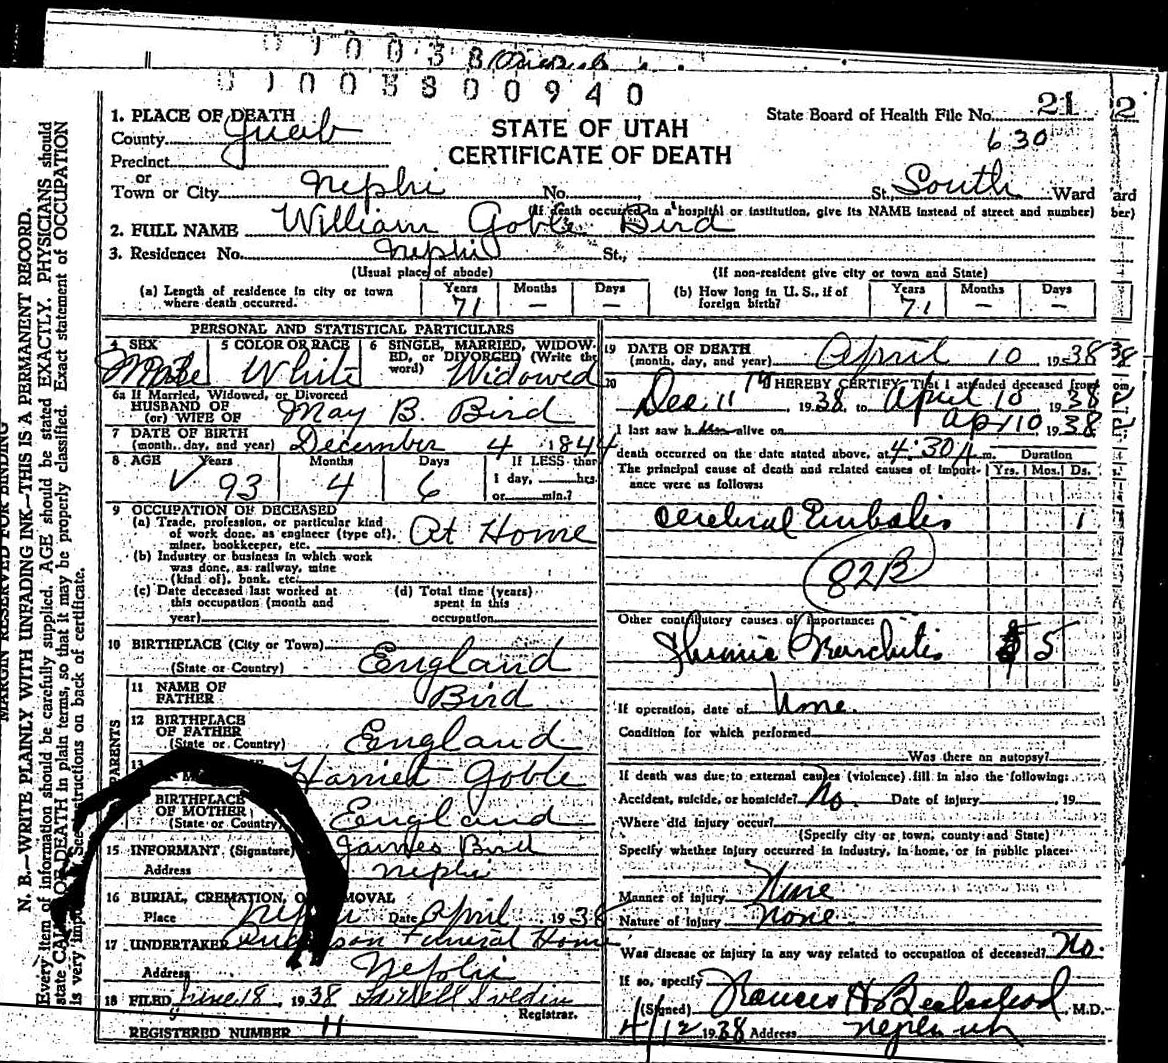 0100380
0100380 0940
1. PLACE OF DEATH
State Board of Health File No. 21
630
County Juab
STATE OF UTAH
CERTIFICATE OF DEATH
Precinct
or
Town or City Nephi No. St., South Ward
(If death occurred in a hospital or institution, give its NAME instead of street and number)
2. FULL NAME William Goble Bird
3. Residence: No. Nephi St.,
(Usual place of abode) (If non-resident give city or town and State)
(a) Length of residence in city or town where death occurred. Years 71 Months — Days —
(b) How long in U. S., if of foreign birth? Years 71 Months — Days —
PERSONAL AND STATISTICAL PARTICULARS
4 SEX Male
5 COLOR OR RACE White
6 SINGLE, MARRIED, WIDOWED, or DIVORCED (Write the word) Widowed
6a If Married, Widowed, or Divorced
HUSBAND OF
(or) WIFE OF May B. Bird
7 DATE OF BIRTH
(month, day, and year) December 4 1844
8 AGE Years 93 Months 4 Days 6 If LESS than 1 day, hrs. or min.?
9 OCCUPATION OF DECEASED
(a) Trade, profession, or particular kind of work done, as engineer (type of), miner, bookkeeper, etc. At Home
(b) Industry or business in which work was done, as railway, mine (kind of), bank, etc.
(c) Date deceased last worked at this occupation (month and year)
(d) Total time (years) spent in this occupation
10 BIRTHPLACE (City or Town)
(State or Country) England
PARENTS
11 NAME OF FATHER Bird
12 BIRTHPLACE OF FATHER
(State or Country) England
13 Harriet Goble
BIRTHPLACE OF MOTHER
(State or Country) England
15 INFORMANT (Signature) James Bird
Address Nephi
16 BURIAL, CREMATION, O MOVAL
Place Nephi Date April 1938
17 UNDERTAKER Anderson Funeral Home
Address Nephi
18 FILED June 18, 1938
Registrar.
REGISTERED NUMBER 11
19 DATE OF DEATH
(month, day, and year) April 10 1938
20 I HEREBY CERTIFY, That I attended deceased from
Dec. 11 1938, to April 10 1938
I last saw h alive on Apr 10 1938
death occurred on the date stated above, at 4:30 A m.
Duration
The principal cause of death and related causes of importance were as follows: Yrs. Mos. Ds.
Cerebral Embolis 1
82B
Other contributory causes of importance:
Bronchitis 5
If operation, date of None.
Condition for which performed
Was there an autopsy?
If death was due to external causes (violence) fill in also the following:
Accident, suicide, or homicide? No. Date of injury 19
Where did injury occur?
(Specify city or town, county and State)
Specify whether injury occurred in industry, in home, or in public place:
Manner of injury None
Nature of injury None
Was disease or injury in any way related to occupation of deceased? No.
If so, specify
(Signed) M.D.
4/12 1938 Address Nephi Ut
MARGIN RESERVED FOR BINDING
N. B.—WRITE PLAINLY WITH UNFADING INK—THIS IS A PERMANENT RECORD.
Every item of information should be carefully supplied. AGE should be stated EXACTLY. PHYSICIANS should
state CAUSE OF DEATH in plain terms, so that it may be properly classified. Exact statement of OCCUPATION
is very impo See instructions on back of certificate.